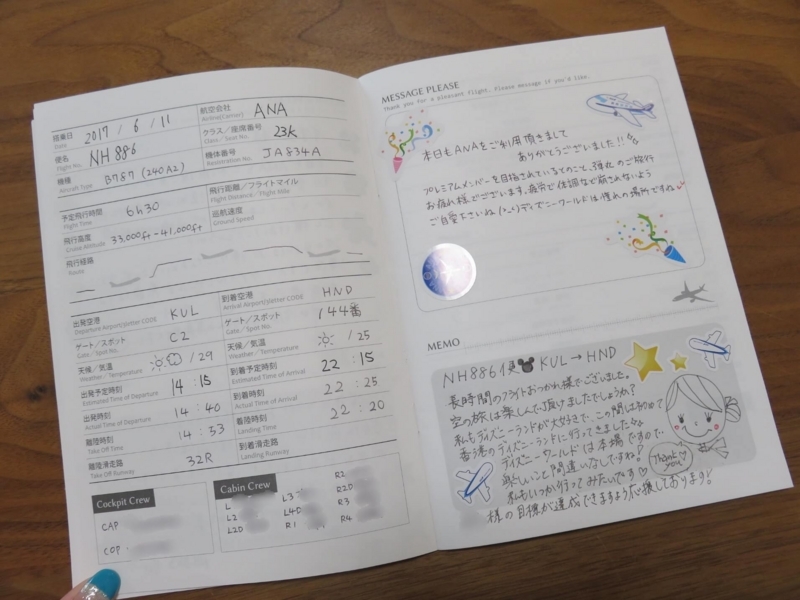 搭乗日 Date 2017/6/11
航空会社 Airline(Carrier) ANA
便名 Flight No. NH886
クラス/座席番号 Class / Seat No. 23K
機種 Aircraft Type B787 (240A2)
機体番号 Registration No. JA834A
予定飛行時間 Flight Time 6h30
飛行距離/フライトマイル Flight Distance / Flight Mile
飛行高度 Cruise Altitude 33,000ft-41,000ft
巡航速度 Ground Speed
飛行経路 Route
出発空港 Departure Airport/3letter CODE KUL
到着空港 Arrival Airport/3letter CODE HND
ゲート/スポット Gate / Spot No. C2
ゲート/スポット Gate / Spot No. 144番
天候/気温 Weather / Temperature /29
天候/気温 Weather / Temperature /25
出発予定時刻 Estimated Time of Departure 14:15
到着予定時刻 Estimated Time of Arrival 22:15
出発時刻 Actual Time of Departure 14:40
到着時刻 Actual Time of Arrival 22:25
離陸時刻 Take Off Time 14:53
着陸時刻 Landing Time 22:20
離陸滑走路 Take Off Runway 32R
到着滑走路 Landing Runway
Cockpit Crew
CAP
COP
Cabin Crew
L
L2
L2D
L3
L4D
R1
R2
R2D
R3
R4
MESSAGE PLEASE
Thank you for a pleasant flight. Please message if you'd like.
本日もANAをご利用頂きまして
ありがとうございました!!
プレミアムメンバーを目指されているとのこと、弾丸のご旅行
お疲れ様でございます。疲労で体調など崩されないよう
ご自愛下さいね(>_<)ディズニーワールドは憧れの場所ですね
MEMO
NH886便 KUL→HND
長時間のフライトおつかれ様でございました。
空の旅は楽しんで頂けましたでしょうか?
私もディズニーランドが大好きで、この間は初めて
香港のディズニーランドに行ってきました
ディズニーワールドは本場ですので、
楽しいこと間違いなしですね!
私もいつか行ってみたいです♡
様の目標が達成できますよう応援しております!
Thank you